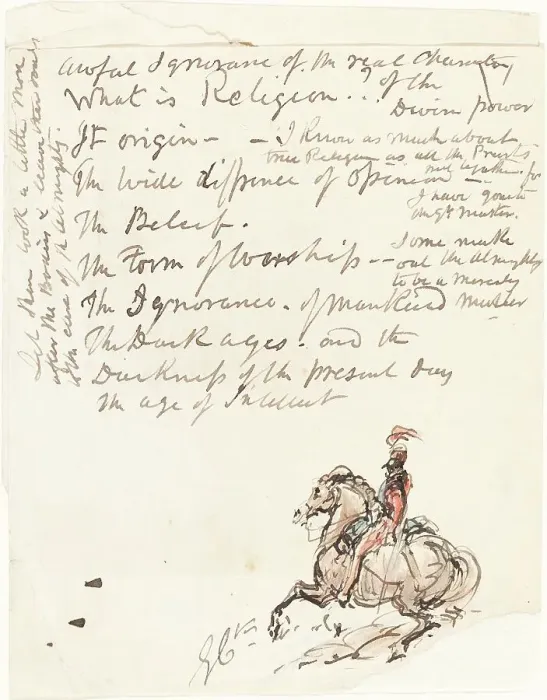 awful Ignorance of the real Character
of the
Divine power
What is Religion..?
It origin –
– I know as much about
true Religion as all the Priests
put together – for
I have gone to
the Gt Master.
The wide diffrence of Openion –
The Beleif.
The Form of Worship –
– Some make
out the Almighty
to be a merciless
Master
The Ignorance. of Mankind
The Dark ages. and the
Darkness of the present day
the age of Intellect
Let them look a little more
after the Brains & leave their souls
to the care of the Almighty.